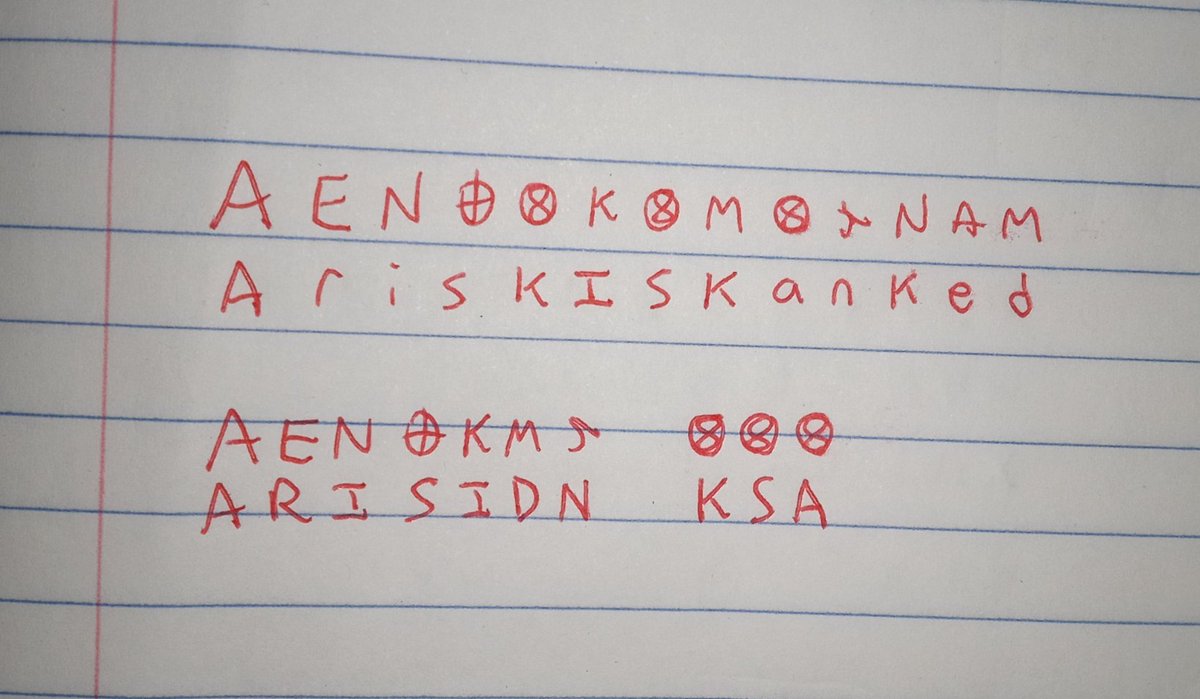 A E N ⊕ ⊗ K ⊗ M ⊗ ♈︎ N A M
A r i s K I S K a n k e d
A E N ⊕ K M ♈︎ ⊗ ⊗ ⊗
A R I S I D N K S A